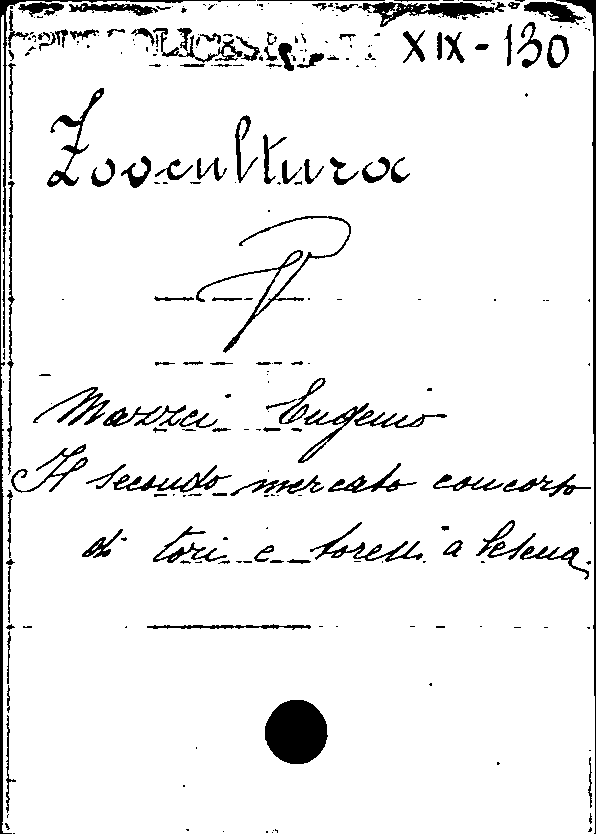 XIX-130
Zoocultura
P
Mazzei Eugenio
Il secondo mercato concorso
di tori e torelli a